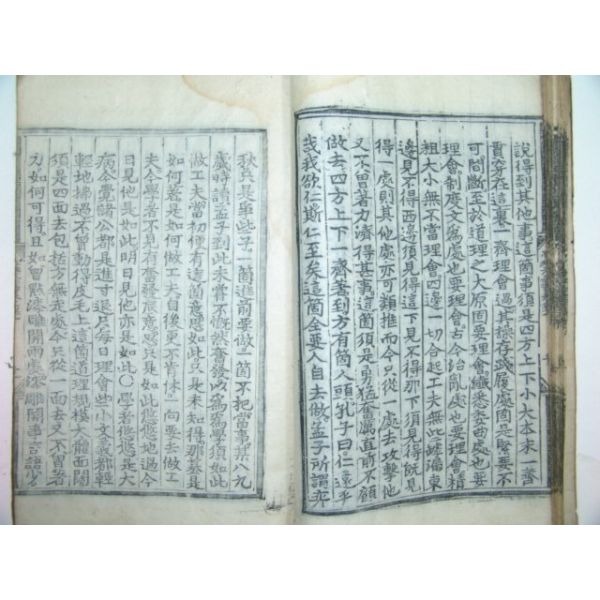 說得到其他事這箇事須是四方上下小大本末一齊
貫穿在這裏一齊理會過其操存踐履處固是緊要不
可間斷至於道理之大原固要理會纖悉委曲處也要
理會制度文爲處也要理會古今治亂處也要理會精
粗大小無不當理會四邊一切合起工夫無些罅漏東
邊見不得西邊須見得這下見不得那下須見得旣見
得一處則其他處亦可類推而今只從一處去攻擊他
又不曾着力濟得甚事這箇須是勇猛奮厲直前不顧
做去四方上下一齊著到方有箇入頭孔子曰仁遠乎
哉我欲仁斯仁至矣這箇全要人自去做孟子所謂奕
秋只是爭些子一箇進前要做一箇不把當事某八九
歲時讀孟子到此未嘗不慨然奮發以爲爲學須如此
做工夫當初便有這箇意思如此只是未知得那棊是
如何著是如何做工夫自後更不肯休一向要去做工
夫今學者不見有奮發底意思只是如此悠悠地過今
日見他是如此明日見他亦是如此○學者悠悠是大
病今覺諸公都是進寸退尺每日理會些小文義都輕
輕地拂過不曾動得皮毛上這箇道理規模大體面闊
須是四面去包括方無走處今只從一面去又不曾着
力如何可得且如曾點漆雕開兩處漆雕開事言語少